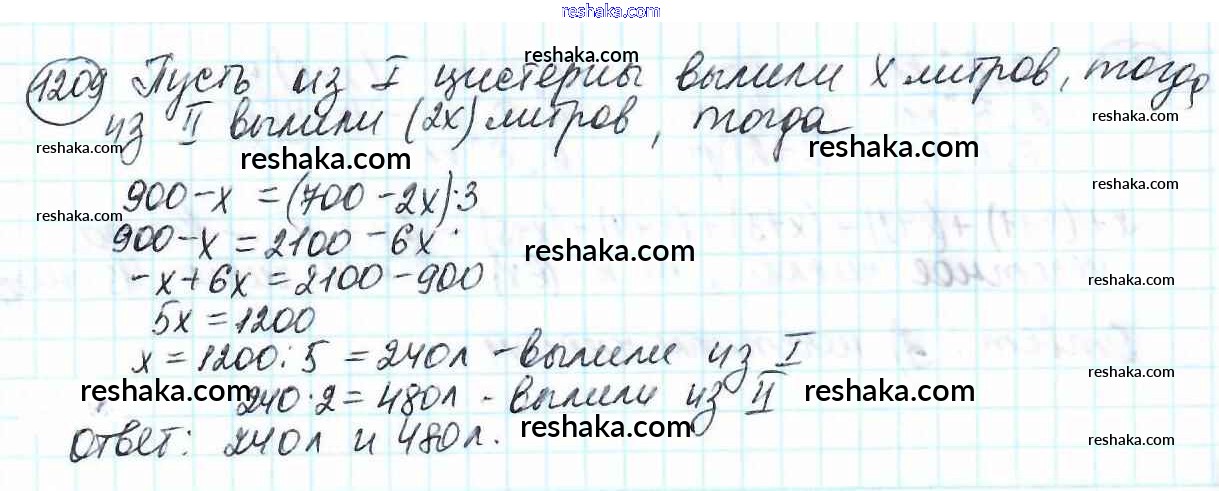 reshaka.com
reshaka.com
1209 Пусть из I цистерны вылили x литров, тогда
из II вылили (2x) литров, тогда
reshaka.com
reshaka.com
reshaka.com
reshaka.com
reshaka.com
900-x = (700-2x)·3
reshaka.com
reshaka.com
900-x = 2100-6x
reshaka.com
-x+6x = 2100-900
reshaka.com
5x = 1200
x = 1200:5 = 240л - вылили из I
reshaka.com
reshaka.com
reshaka.com
240·2 = 480л - вылили из II
reshaka.com
reshaka.com
Ответ: 240л и 480л.